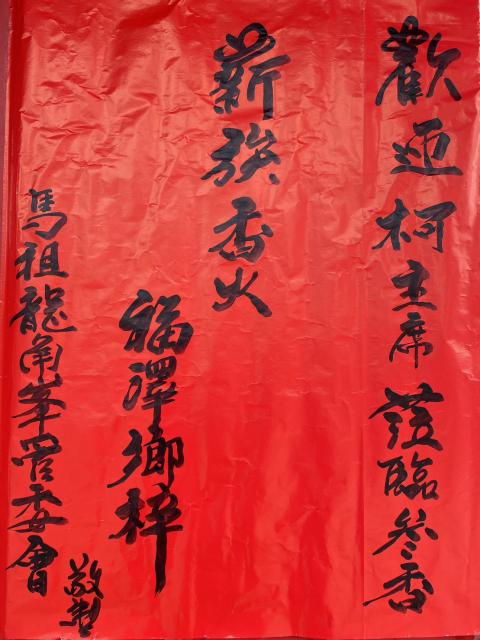 歡迎柯主席蒞臨參香
薪族香火
福澤鄉梓
馬祖龍角峯管委會
敬製